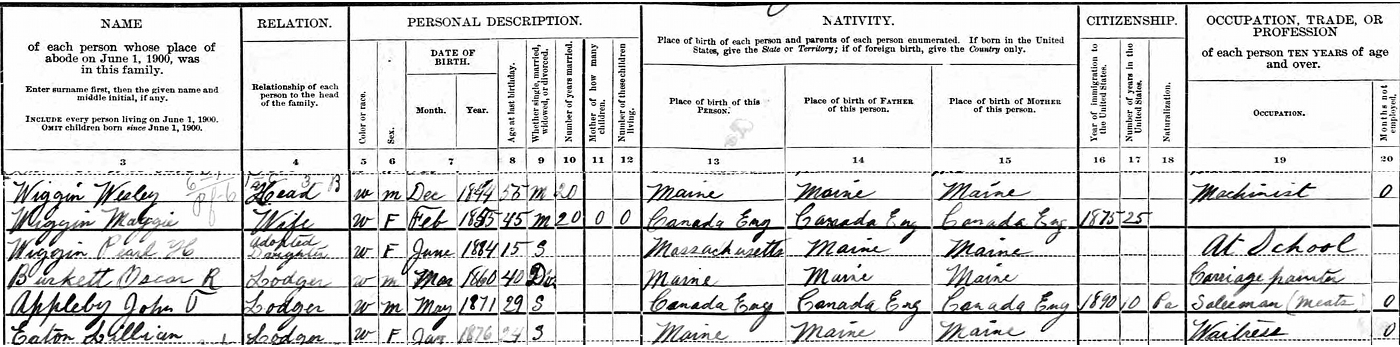 NAME RELATION. PERSONAL DESCRIPTION. NATIVITY. CITIZENSHIP. OCCUPATION, TRADE, OR PROFESSION
of each person whose place of abode on June 1, 1900, was in this family.
Enter surname first, then the given name and middle initial, if any.
INCLUDE every person living on June 1, 1900.
OMIT children born since June 1, 1900.
Relationship of each person to the head of the family.
Color or race.
Sex.
DATE OF BIRTH.
Month. Year.
Age at last birthday.
Whether single, married, widowed, or divorced.
Number of years married.
Mother of how many children.
Number of these children living.
Place of birth of each person and parents of each person enumerated. If born in the United
States, give the State or Territory; if of foreign birth, give the Country only.
Place of birth of this PERSON.
Place of birth of FATHER of this person.
Place of birth of MOTHER of this person.
Year of immigration to the United States.
Number of years in the United States.
Naturalization.
of each person TEN YEARS of age and over.
OCCUPATION.
Months not employed.
3 4 5 6 7 8 9 10 11 12 13 14 15 16 17 18 19 20
Wiggin Wesley Head B w m Dec 1844 55 M 20 Maine Maine Maine Machinist 0
Wiggin Maggie Wife w F Feb 1855 45 M 20 0 0 Canada Eng Canada Eng Canada Eng 1875 25
Wiggin Pearl H Adopted Daughter w F June 1884 15 S Massachusetts Maine Maine At School
Burkett Oscar R Lodger w m Mar 1860 40 Div Maine Maine Maine Carriage painter
Appleby John T Lodger w m May 1871 29 S Canada Eng Canada Eng Canada Eng 1890 10 Pa Salesman (Meats) 0
Eaton Lillian Lodger w F Jan 1876 24 S Maine Maine Maine Waitress 0